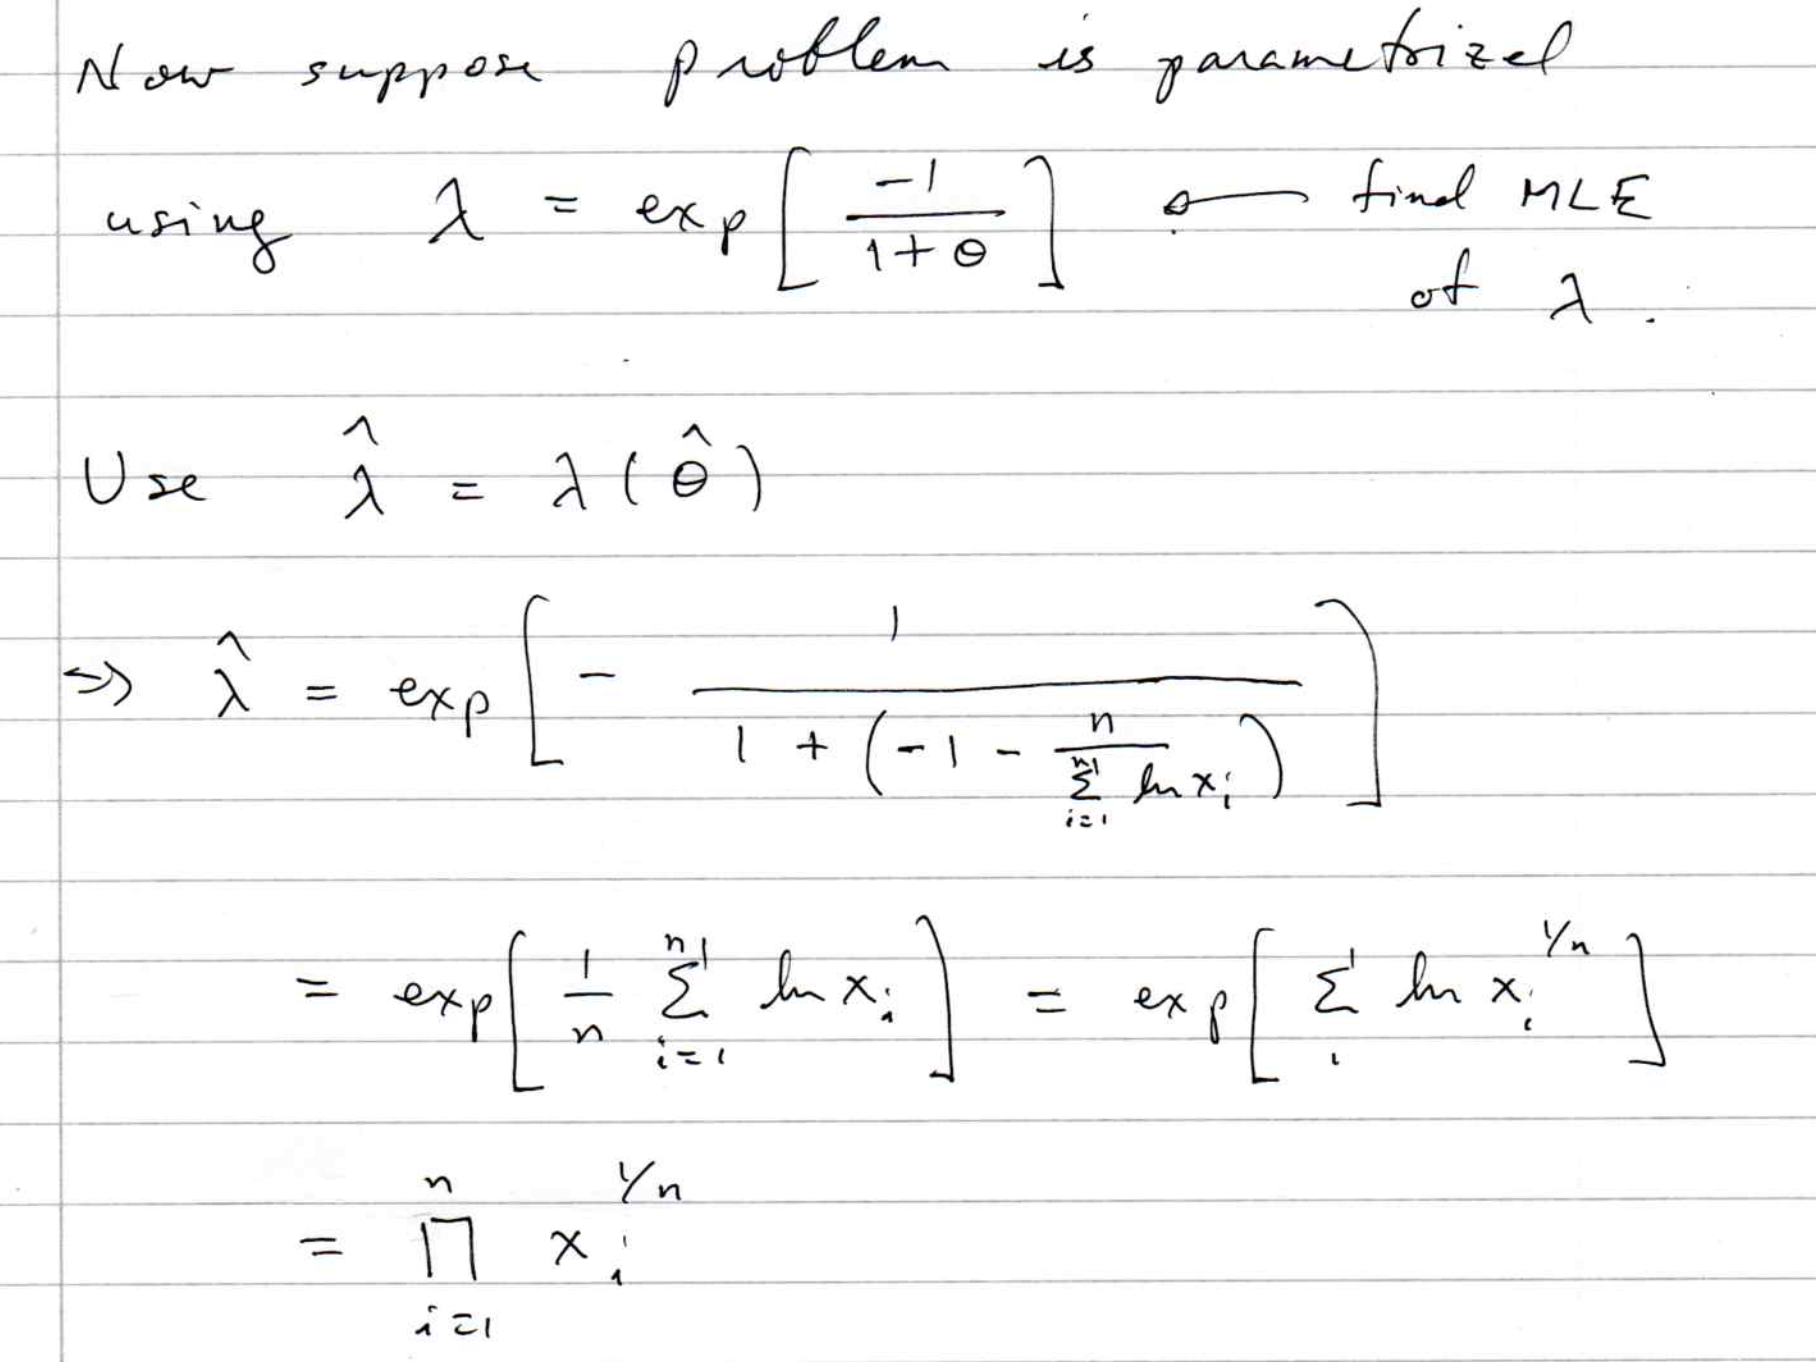 Now suppose problem is parametrized
using λ = exp[ -1 / (1 + θ) ] ← find MLE
of λ.
Use λ̂ = λ(θ̂)
⇒ λ̂ = exp[ - 1 / (1 + (-1 - n / ∑_{i=1}^{n} ln x_i)) ]
= exp[ 1/n ∑_{i=1}^{n} ln x_i ] = exp[ ∑_i ln x_i^{1/n} ]
= ∏_{i=1}^{n} x_i^{1/n}